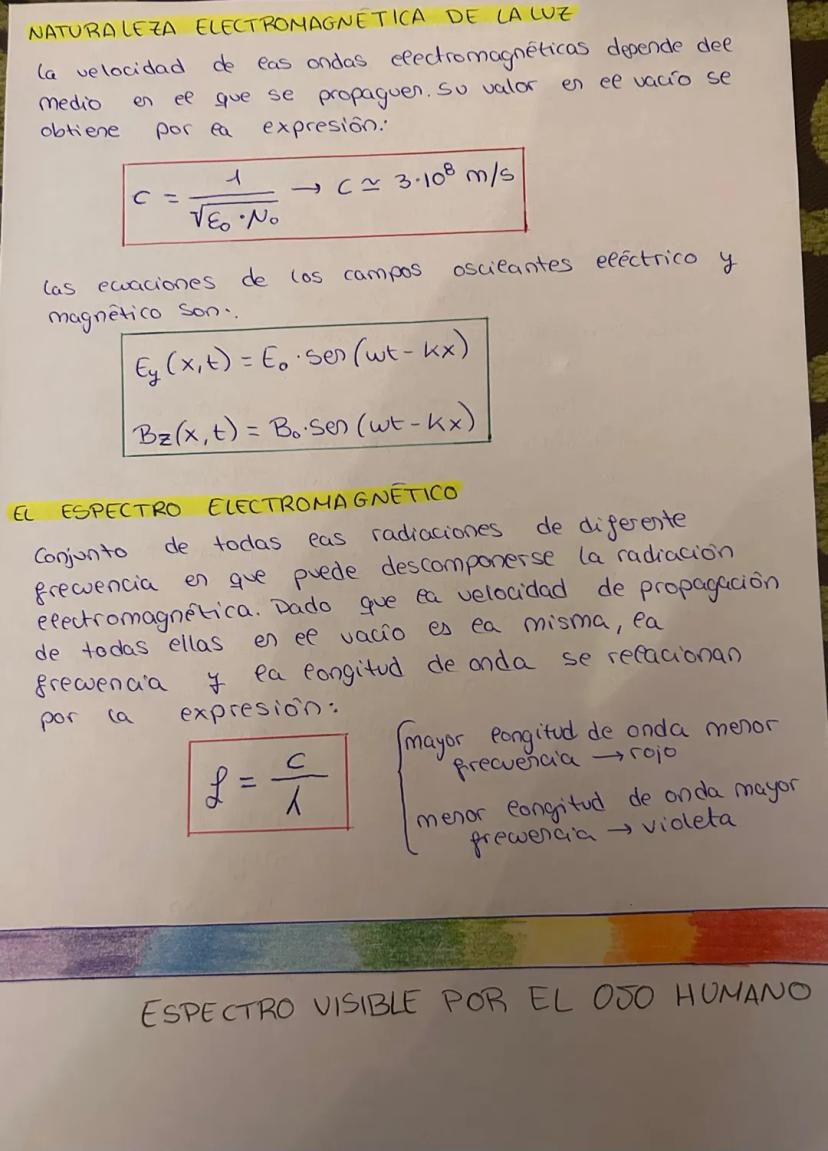 NATURALEZA ELECTROMAGNÉTICA DE LA LUZ
La velocidad de las ondas electromagnéticas depende del
medio en el que se propaguen. Su valor en el vacío se
obtiene por la expresión:
c = 1 / √ε₀ · μ₀ → c ≃ 3·10⁸ m/s
Las ecuaciones de los campos oscilantes eléctrico y
magnético son:
Ey (x,t) = E₀ · sen (wt - kx)
Bz (x,t) = B₀ · sen (wt - kx)
EL ESPECTRO ELECTROMAGNÉTICO
Conjunto de todas las radiaciones de diferente
frecuencia en que puede descomponerse la radiación
electromagnética. Dado que la velocidad de propagación
de todas ellas en el vacío es la misma, la
frecuencia y la longitud de onda se relacionan
por la expresión:
f = c / λ
mayor longitud de onda menor
frecuencia → rojo
menor longitud de onda mayor
frecuencia → violeta
ESPECTRO VISIBLE POR EL OJO HUMANO